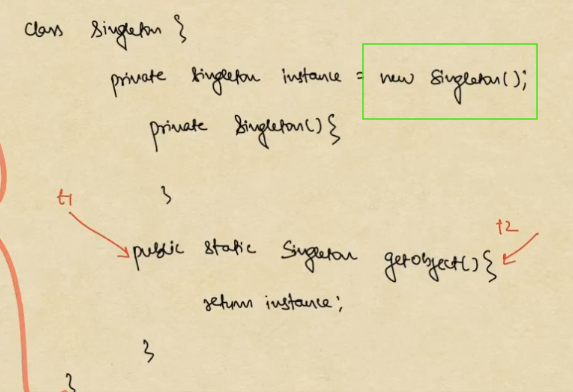 class Singleton {
private Singleton instance = new Singleton();
private Singleton() {
}
t1
t2
public static Singleton getObject() {
return instance;
}
}